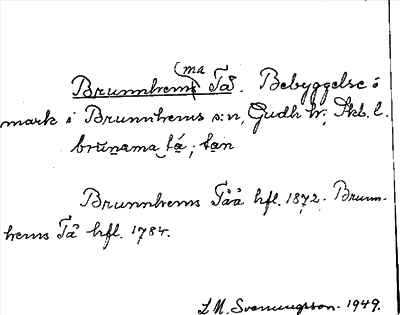 Brunnhems (ma Tå. Bebyggelse å
mark i Brunnhems s:n, Gudh. hr, Skb. l.
brunama tá; tan
Brunnhems Tåå hfl. 1872. Brunn-
hems Tå hfl. 1784.
L M. Svenungsson. 1949.